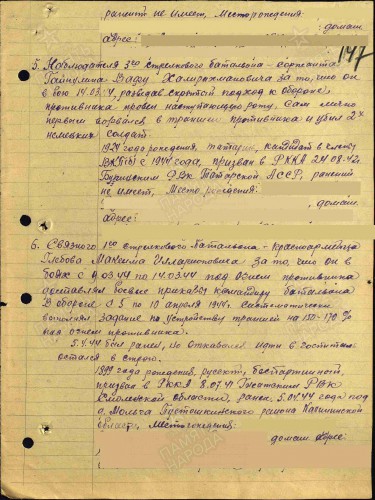 ранений не имеет, Место рождения:
домаш.
адрес:
147
5. Наблюдателя 3го стрелкового батальона - сержанта
Гайнулина Вафу Хамрахмановича за то, что он
в бою 14.03.44, разведав скрытый подход к обороне
противника провел наступающую роту. Сам лично
первым ворвался в траншеи противника и убил 2х
немецких солдат.
1924 года рождения, татарин, кандидат в члены
ВКП(б) с 1944 года, призван в РККА 08.42
РВК Татарской АССР, ранений
не имеет, Место рождения:
домаш.
адрес:
6. Связного 1го стрелкового батальона - красноармейца
Глебова Максима Илларионовича за то, что он в
боях с 9.03.44 по 14.03.44 под огнем противника
доставлял боевые приказы командиру батальона
В обороне с 5 по 10 апреля 1944г. систематически
выполнял задание по устройству траншей на 150-170%
под огнем противника.
5.4.44 был ранен, но отказался идти в госпиталь
остался в строю.
1899 года рождения, русский, беспартийный,
призван в РККА 8.07.41 РВК
Смоленской области, ранен 5.04.44 года под
д. Пустошкинского района Калининской
области, Место рождения:
домаш. адрес: